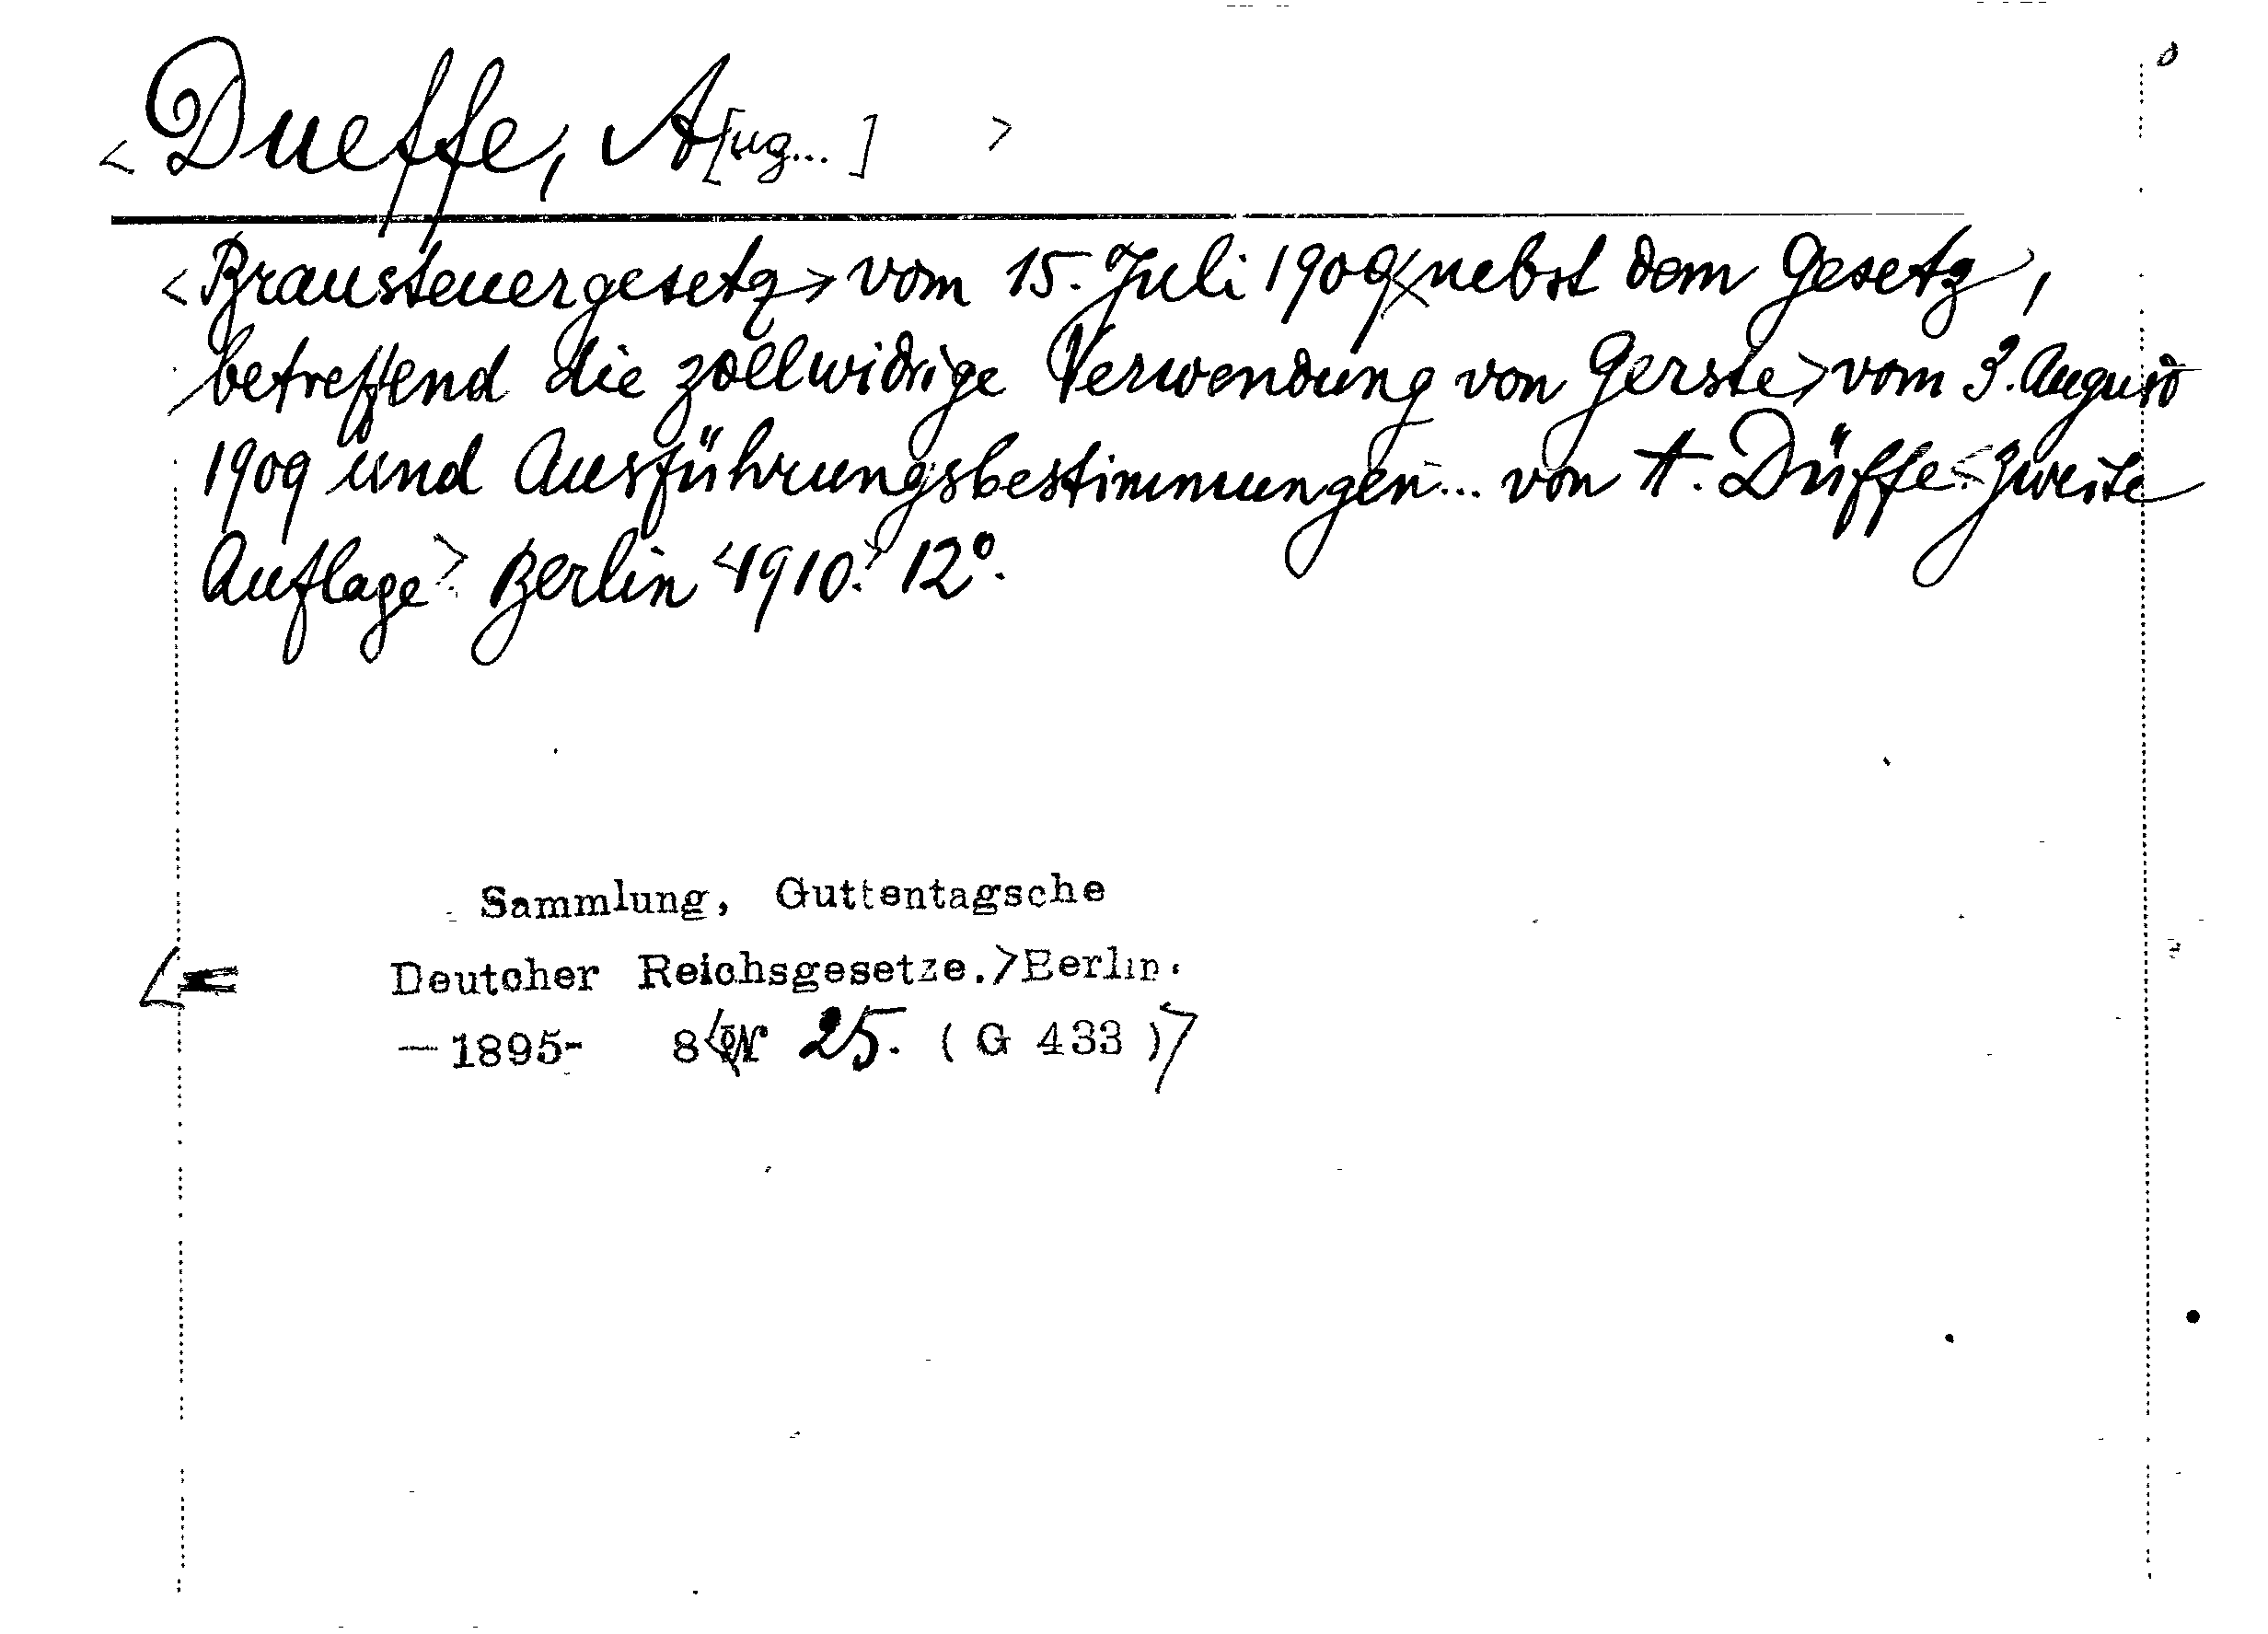 <Dueffe, A[ug...] >
<Brausteuergesetz> vom 15. Juli 1909 <nebst dem Gesetz,
betreffend die zollwidrige Verwendung von Gerste> vom 3. August
1909 und Ausführungsbestimmungen... von A. Düffe. <Zweite
Auflage>. Berlin <1910.> 12°.
Sammlung, Guttentagsche
Deutcher Reichsgesetze.> Berlin.
—1895- 8° <N 25. ( G 433 )>